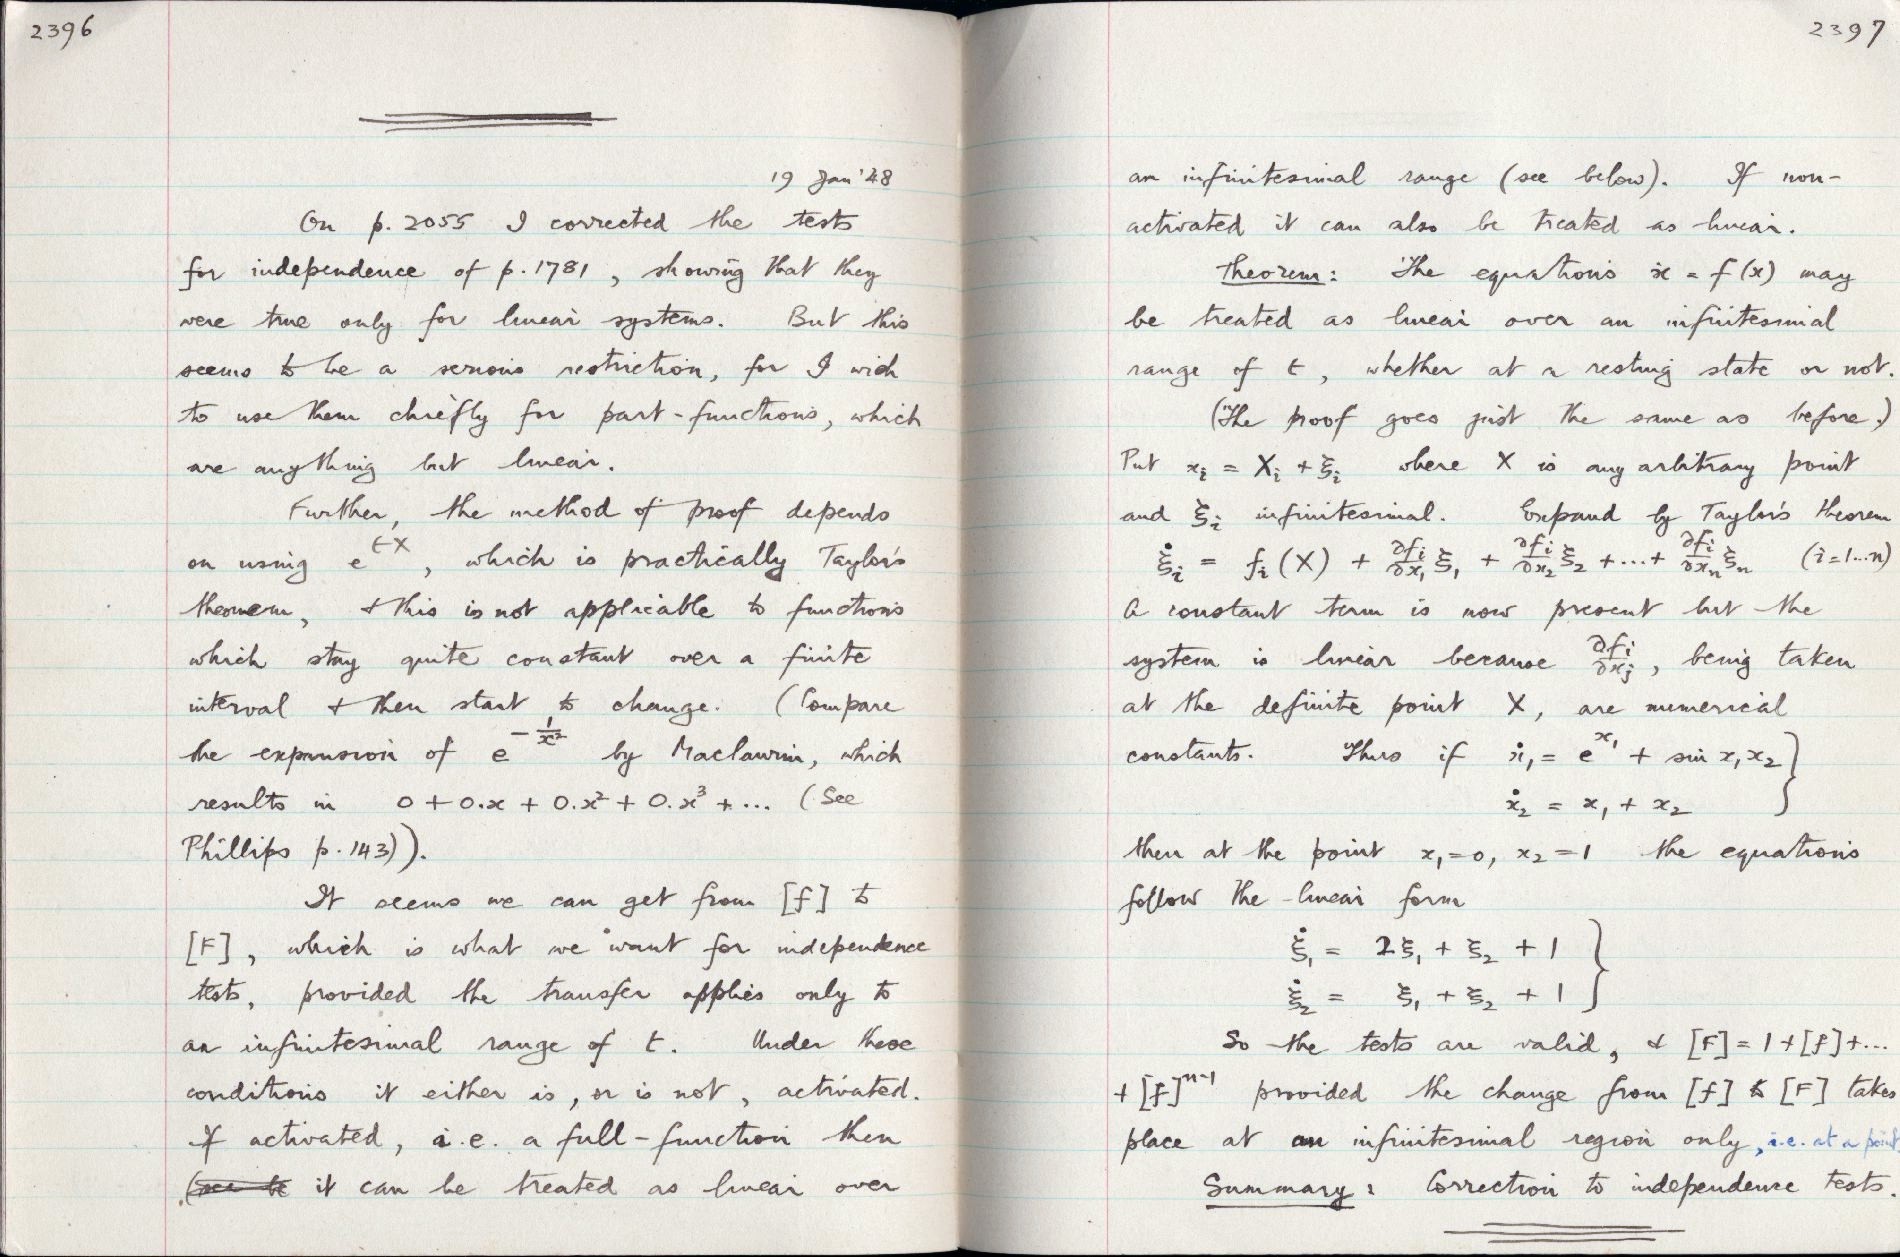 2396
19 Jan '48
On p. 2055 I corrected the tests
for independence of p. 1781, showing that they
were true only for linear systems. But this
seems to be a serious restriction, for I wish
to use them chiefly for part-functions, which
are anything but linear.
Further, the method of proof depends
on using e^{tX}, which is practically Taylor's
theorem, & this is not applicable to functions
which stay quite constant over a finite
interval & then start to change. (Compare
the expansion of e^{-1/x²} by Maclaurin, which
results in 0 + 0.x + 0.x² + 0.x³ + ... (See
Phillips p. 143)).
It seems we can get from [f] to
[F], which is what we want for independence
tests, provided the transfer applies only to
an infinitesimal range of t. Under these
conditions it either is, or is not, activated.
If activated, i.e. a full-function then
it can be treated as linear over
2397
an infinitesimal range (see below). If non-
activated it can also be treated as linear.
Theorem: The equations ẋ = f(x) may
be treated as linear over an infinitesimal
range of t, whether at a resting state or not.
(The proof goes just the same as before.)
Put xᵢ = Xᵢ + ξᵢ where X is any arbitrary point
and ξᵢ infinitesimal. Expand by Taylor's theorem
ξ̇ᵢ = fᵢ(X) + ∂fᵢ/∂x₁ ξ₁ + ∂fᵢ/∂x₂ ξ₂ + ... + ∂fᵢ/∂xₙ ξₙ (i=1...n)
A constant term is now present but the
system is linear because ∂fᵢ/∂xⱼ, being taken
at the definite point X, are numerical
constants. Thus if ẋ₁ = e^{x₁} + sin x₁x₂ }
ẋ₂ = x₁ + x₂
then at the point x₁=0, x₂=1 the equations
follow the linear form
ξ̇₁ = 2ξ₁ + ξ₂ + 1 }
ξ̇₂ = ξ₁ + ξ₂ + 1
So the tests are valid, & [F] = 1+[f]+...
+[f]^{n-1} provided the change from [f] to [F] takes
place at an infinitesimal region only, i.e. at a point.
Summary: Correction to independence tests.